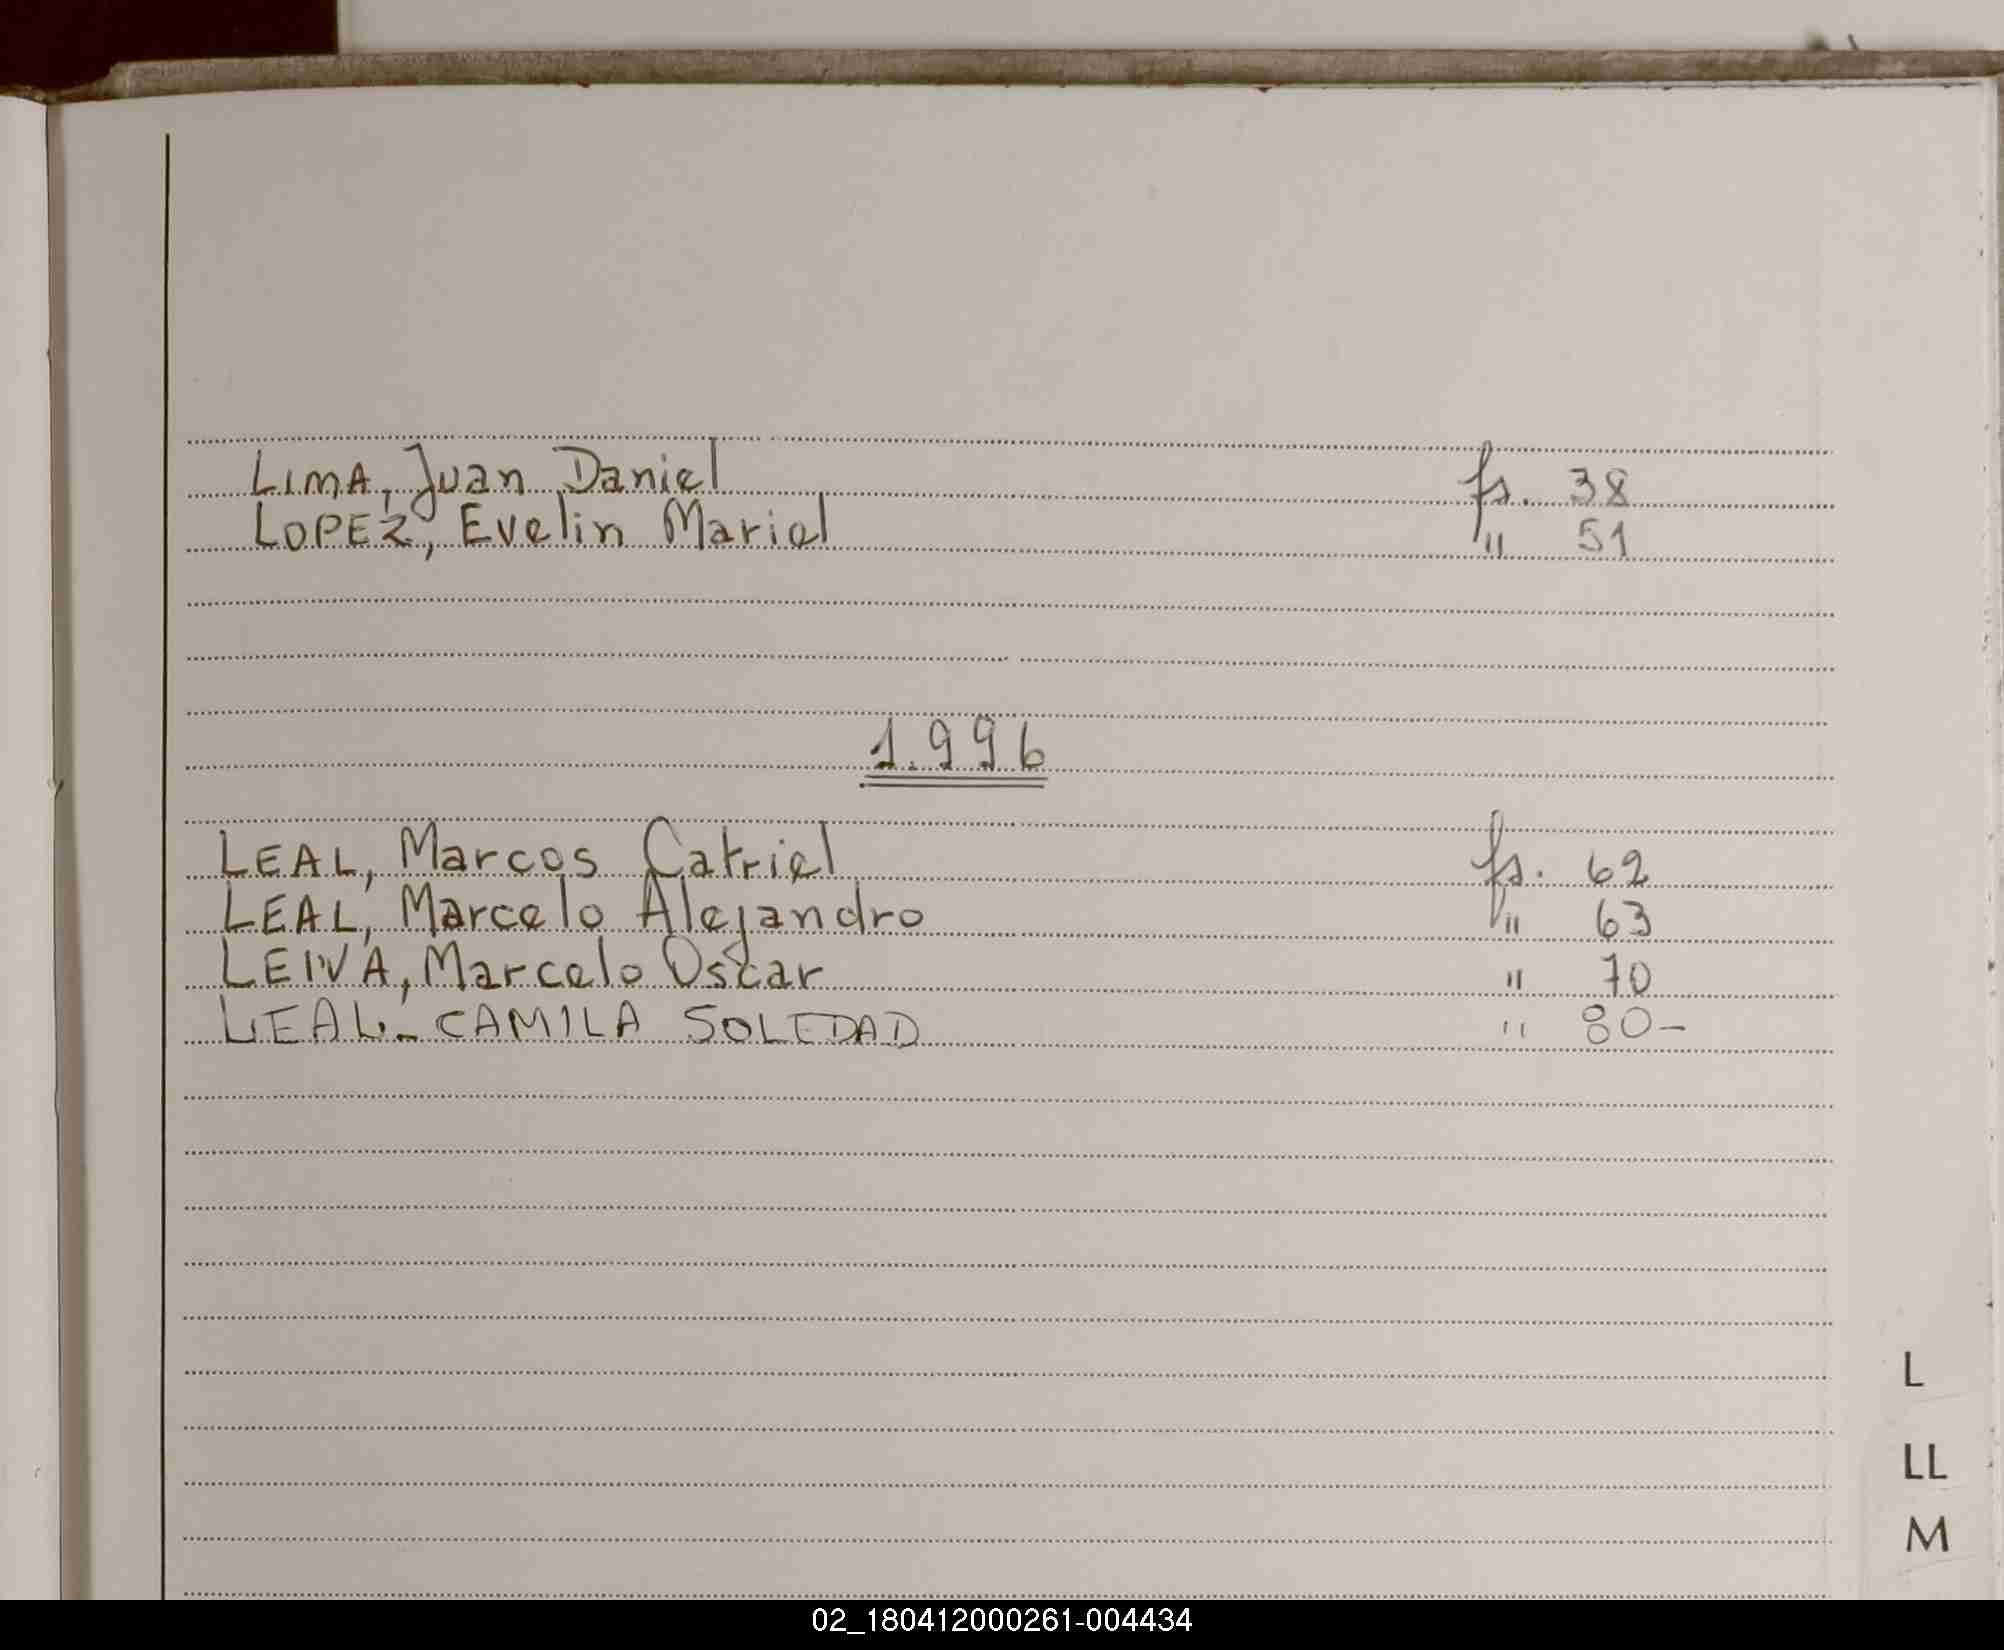 LIMA, Juan Daniel fs. 38
LOPEZ, Evelin Mariel " 51
1.996
LEAL, Marcos Catriel fs. 62
LEAL, Marcelo Alejandro " 63
LEIVA, Marcelo Oscar " 70
LEAL - CAMILA SOLEDAD " 80-
L
LL
M
02_180412000261-004434